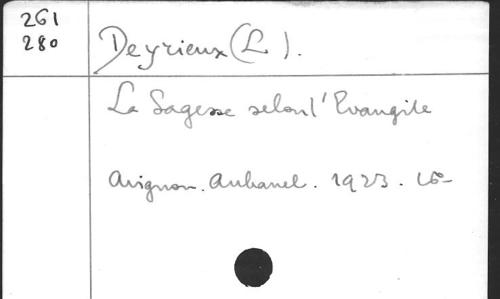 261
280
Deyrieux (L).
La Sagesse selon l'Evangile
Avignon. Aubanel. 1923. 16°